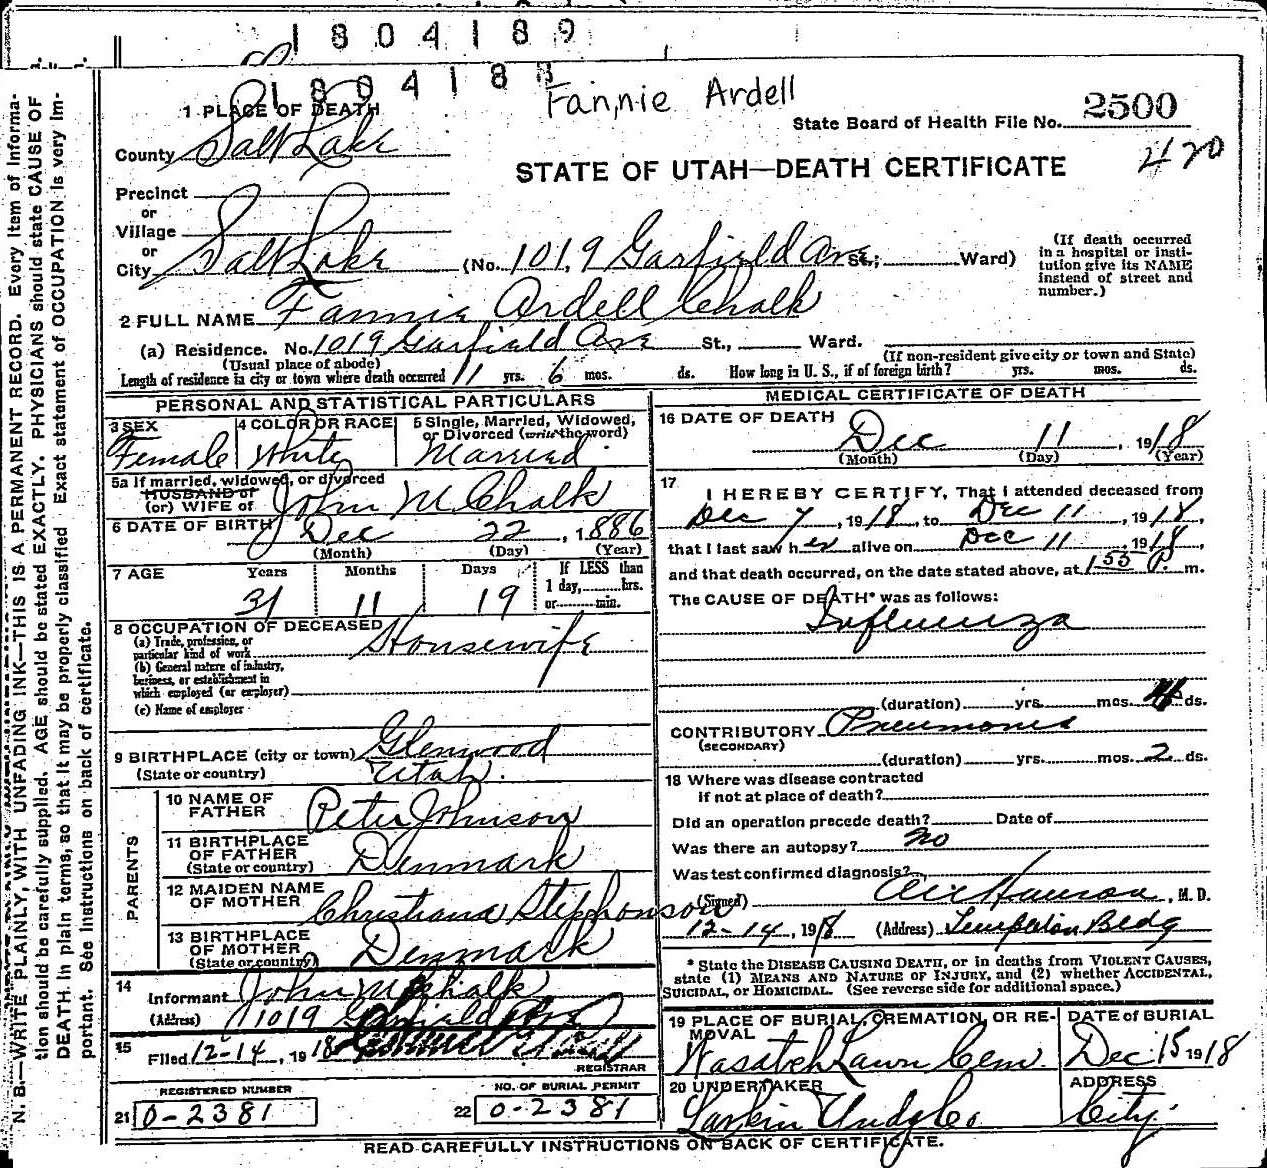 1804189
1804188
Fannie Ardell
1 PLACE OF DEATH
State Board of Health File No. 2500
420
County Salt Lake
STATE OF UTAH—DEATH CERTIFICATE
Precinct
or
Village
or
City Salt Lake (No. 1019 Garfield Ave St.; Ward)
(If death occurred in a hospital or institution give its NAME instead of street and number.)
2 FULL NAME Fannie Ardell Chalk
(a) Residence. No. 1019 Garfield Ave St., Ward.
(Usual place of abode) (If non-resident give city or town and State)
Length of residence in city or town where death occurred 11 yrs. 6 mos. ds. How long in U. S., if of foreign birth? yrs. mos. ds.
PERSONAL AND STATISTICAL PARTICULARS
3 SEX Female
4 COLOR OR RACE White
5 Single, Married, Widowed, or Divorced (write the word) Married
5a If married, widowed, or divorced
HUSBAND of
(or) WIFE of John M Chalk
6 DATE OF BIRTH Dec 22, 1886
(Month) (Day) (Year)
7 AGE Years Months Days If LESS than
31 11 19 1 day, hrs.
or min.
8 OCCUPATION OF DECEASED
(a) Trade, profession, or particular kind of work Housewife
(b) General nature of industry, business, or establishment in which employed (or employer)
(c) Name of employer
9 BIRTHPLACE (city or town) Glenwood
(State or country) Utah.
PARENTS
10 NAME OF FATHER Peter Johnson
11 BIRTHPLACE OF FATHER (State or country) Denmark
12 MAIDEN NAME OF MOTHER Christiana Stephonson
13 BIRTHPLACE OF MOTHER (State or country) Denmark
14 Informant John M Chalk
(Address) 1019 Garfield Ave
15 Filed 12-14, 1918
REGISTRAR
REGISTERED NUMBER NO. OF BURIAL PERMIT
21 0-2381 22 0-2381
MEDICAL CERTIFICATE OF DEATH
16 DATE OF DEATH Dec 11, 1918
(Month) (Day) (Year)
17 I HEREBY CERTIFY, That I attended deceased from
Dec 7, 1918, to Dec 11, 1918,
that I last saw her alive on Dec 11, 1918,
and that death occurred, on the date stated above, at 1 55 P. m.
The CAUSE OF DEATH* was as follows:
Influenza
(duration) yrs. mos. ds.
CONTRIBUTORY Pneumonia
(SECONDARY) (duration) yrs. mos. 2 ds.
18 Where was disease contracted
if not at place of death?
Did an operation precede death? Date of
Was there an autopsy? No
Was test confirmed diagnosis?
(Signed) M. D.
12-14, 1918 (Address) Templeton Bldg
* State the DISEASE CAUSING DEATH, or in deaths from VIOLENT CAUSES,
state (1) MEANS AND NATURE OF INJURY, and (2) whether ACCIDENTAL,
SUICIDAL, or HOMICIDAL. (See reverse side for additional space.)
19 PLACE OF BURIAL, CREMATION, OR REMOVAL Wasatch Lawn Cem.
DATE of BURIAL Dec 15 1918
20 UNDERTAKER Larkin Undg Co.
ADDRESS City.
READ CAREFULLY INSTRUCTIONS ON BACK OF CERTIFICATE.
N. B.—WRITE PLAINLY, WITH UNFADING INK—THIS IS A PERMANENT RECORD. Every item of informa-
tion should be carefully supplied. AGE should be stated EXACTLY. PHYSICIANS should state CAUSE OF
DEATH in plain terms, so that it may be properly classified. Exact statement of OCCUPATION is very im-
portant. See instructions on back of certificate.